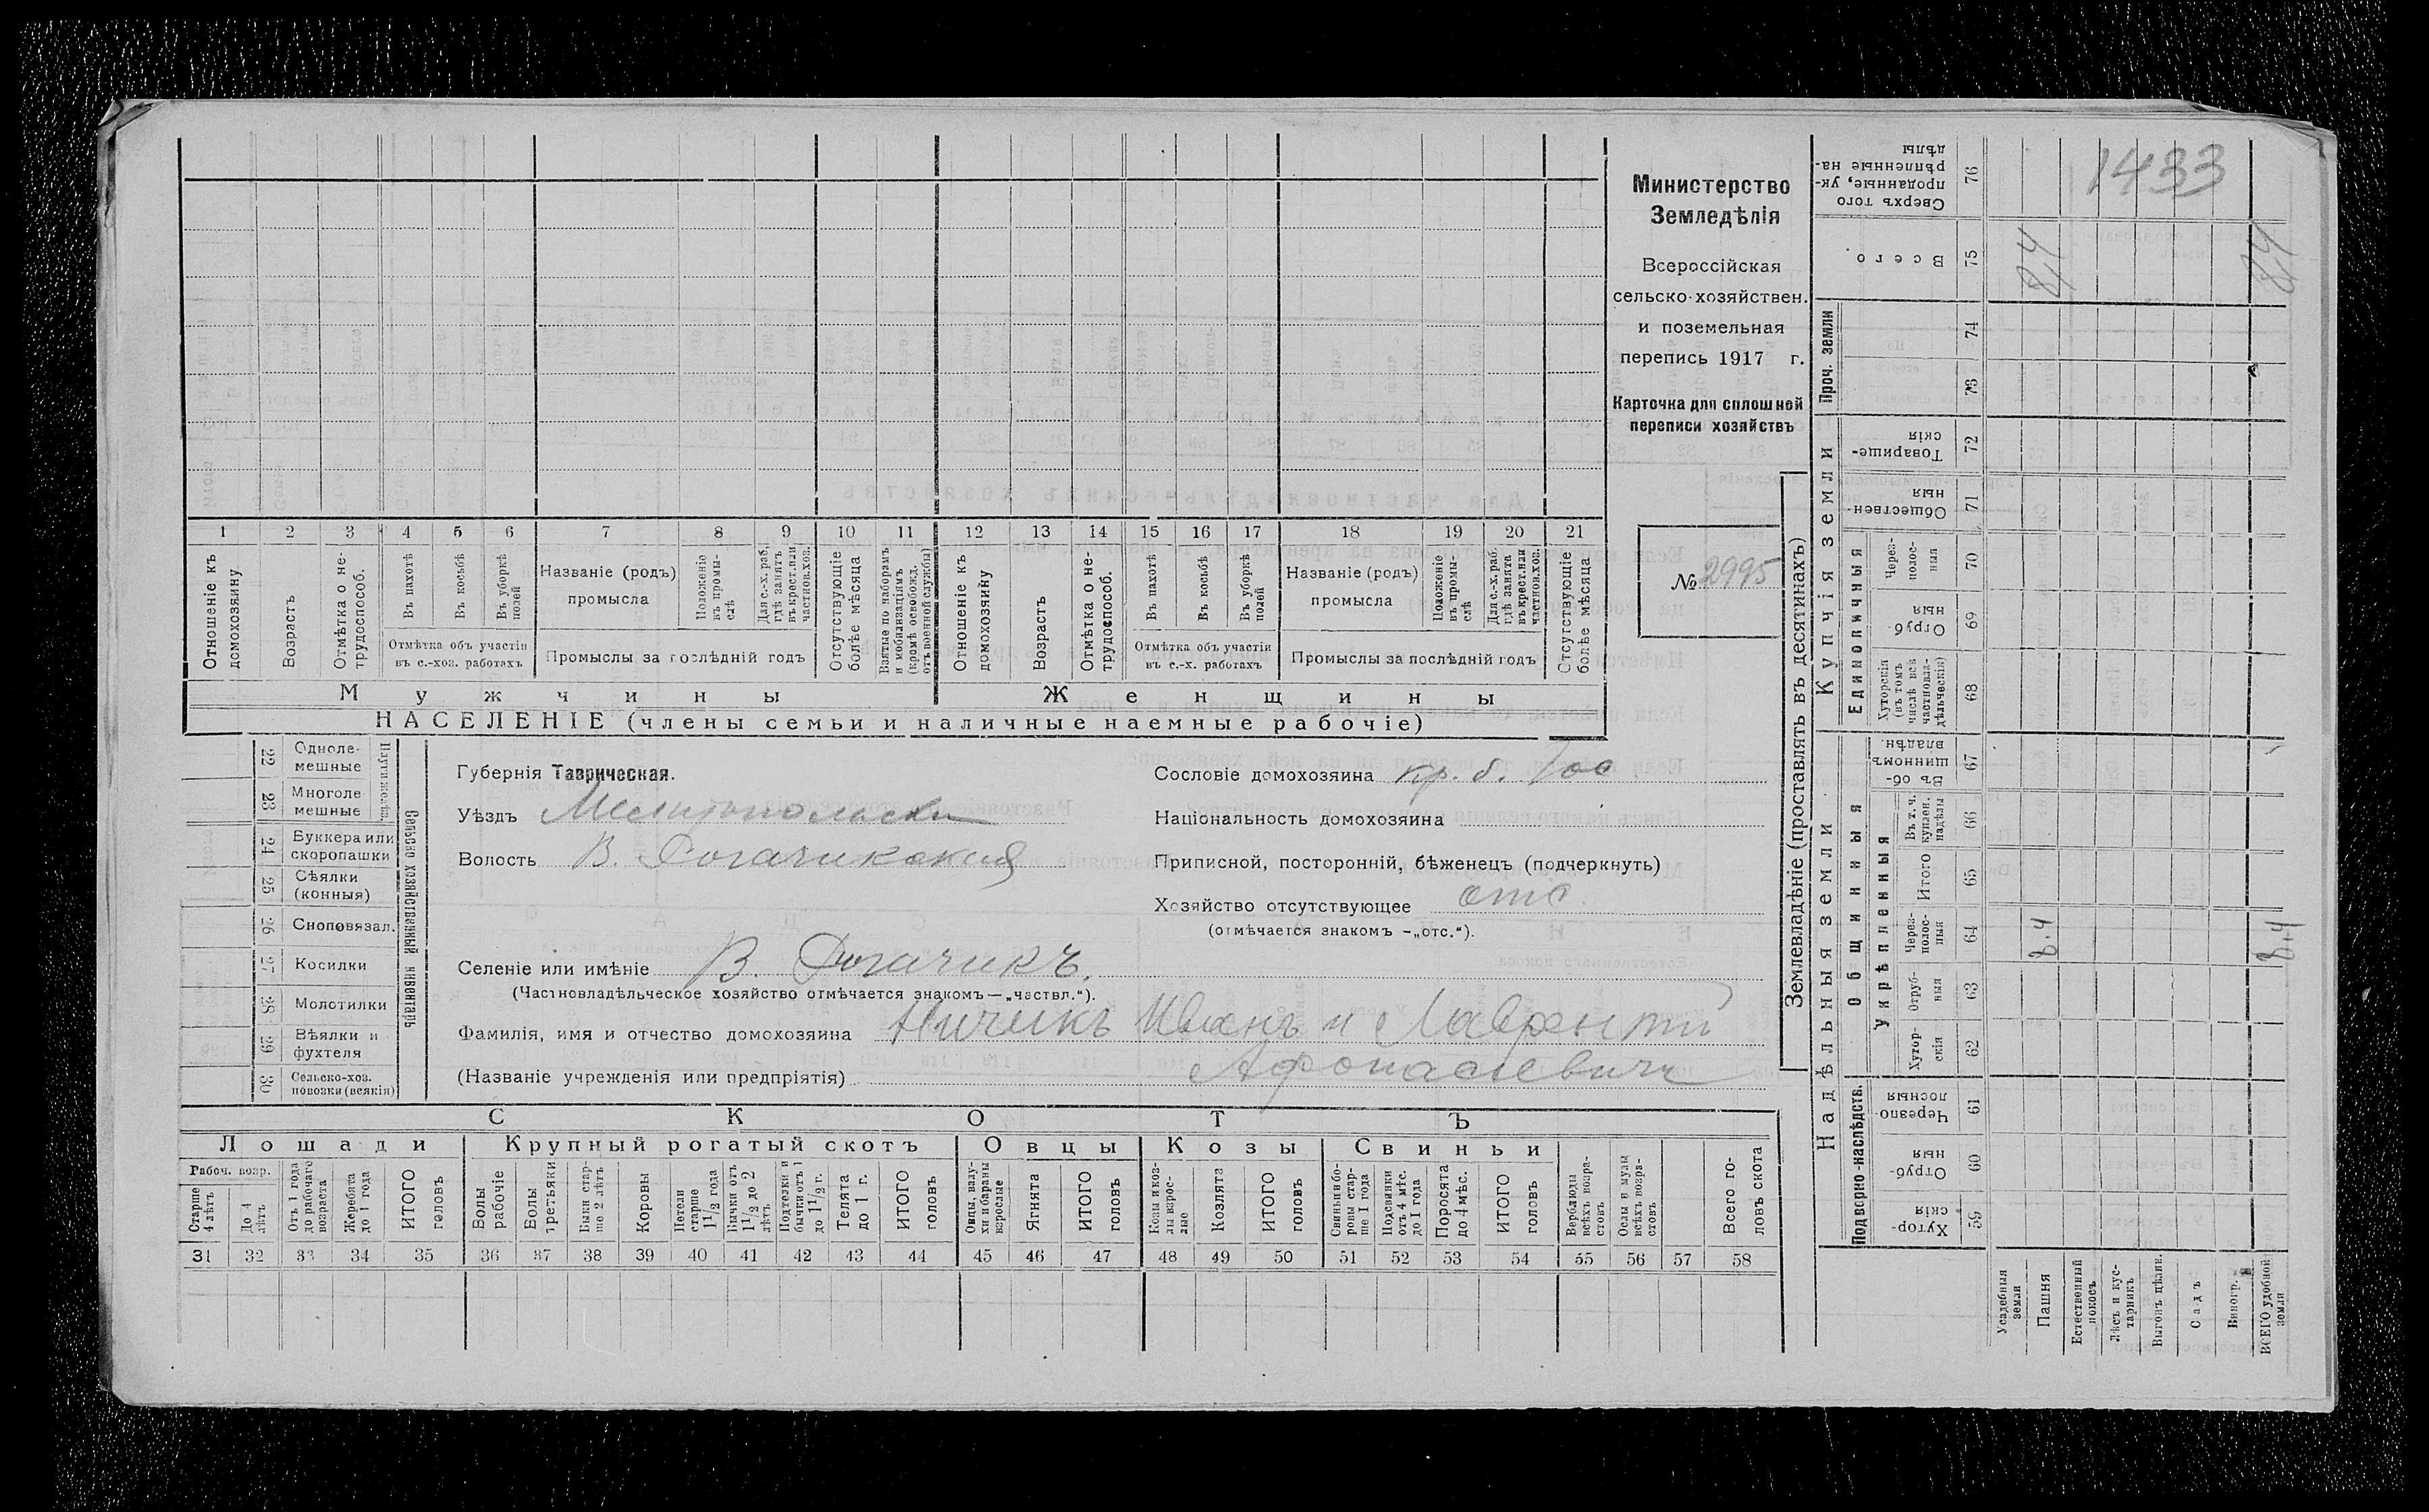 1 2 3 4 5 6 7 8 9 10 11 12 13 14 15 16 17 18 19 20 21
Отношеніе къ домохозяину.
Возрастъ
Отмѣтка о не-
трудоспособ.
Въ пахотѣ
Въ косьбѣ
Въ уборкѣ
полей
Отмѣтка объ участіи
въ с.-хоз. работахъ
Названіе (родъ)
промысла
Положеніе
въ промы-
слѣ
Для с.-х. раб.
гдѣ занятъ
въ крест. или
частнов. хоз.
Промыслы за послѣдній годъ
Отсутствующіе
болѣе мѣсяца
Взятые по наборамъ
и мобилизаціямъ
(кромѣ освобожд.
отъ военной службы)
Отношеніе къ
домохозяину
Возрастъ
Отмѣтка о не-
трудоспособ.
Въ пахотѣ
Въ косьбѣ
Въ уборкѣ
полей
Отмѣтка объ участіи
въ с.-х. работахъ
Названіе (родъ)
промысла
Положеніе
въ промы-
слѣ
Для с.-х. раб.
гдѣ занята
въ крест. или
частнов. хоз.
Промыслы за послѣдній годъ
Отсутствующіе
болѣе мѣсяца
Мужчины
Женщины
НАСЕЛЕНІЕ (члены семьи и наличные наемные рабочіе)
Министерство
Земледѣлія
Всероссійская
сельско-хозяйствен.
и поземельная
перепись 1917 г.
Карточка для сплошной
переписи хозяйствъ
№ 2995
22 Одноле-
мешные
23 Многоле
мешные
24 Буккера или
скоропашки
25 Сѣялки
(конныя)
26 Сноповязал.
27 Косилки
28 Молотилки
29 Вѣялки и
фухтеля
30 Сельско-хоз.
повозки (всякія)
Сельско хозяйственный инвентарь
Губернія Таврическая.
Уѣздъ Мелитопольски
Волость В. Рогачикския
Селеніе или имѣніе В. Рогачикъ.
(Частновладѣльческое хозяйство отмѣчается знакомъ—„частвл.“).
Фамилія, имя и отчество домохозяина Ничикъ Иванъ и Лаврентій
(Названіе учрежденія или предпріятія) Афонасіевичи
Сословіе домохозяина кр. б. Гос
Національность домохозяина
Приписной, посторонній, бѣженецъ (подчеркнуть)
Хозяйство отсутствующее отс.
(отмѣчается знакомъ –„отс.“).
СКОТЪ
Лошади
Крупный рогатый скотъ
Овцы
Козы
Свиньи
Рабоч. возр.
Старше
4 лѣтъ
До 4
лѣтъ
Отъ 1 года
до рабочаго
возраста
Жеребята
до 1 года
ИТОГО
головъ
Волы
рабочіе
Волы
третьяки
Быки стар-
ше 2 лѣтъ
Коровы
Нетели
старше
1 1/2 года
Бычки отъ
1 1/2 до 2
лѣтъ
Подтелки и
бычки отъ 1
до 1 1/2 г.
Телята
до 1 г.
ИТОГО
головъ
Овцы, валу-
хи и бараны
взрослые
Ягнята
ИТОГО
головъ
Козы и коз-
лы взрос-
лые
Козлята
ИТОГО
головъ
Свиньи и бо-
ровы стар-
ше 1 года
Подсвинки
отъ 4 мѣс.
до 1 года
Поросята
до 4 мѣс.
ИТОГО
головъ
Верблюды
всѣхъ возра-
стовъ
Ослы и мулы
всѣхъ возра-
стовъ
Всего го-
ловъ скота
31 32 33 34 35 36 37 38 39 40 41 42 43 44 45 46 47 48 49 50 51 52 53 54 55 56 57 58
Землевладѣніе (проставлять въ десятинахъ)
Купчія земли
Надѣльныя земли
Проч. земли
Единоличныя
Общинныя
Укрѣпленныя
Подворно-наслѣдств.
Сверхъ того
проданные, ук-
рѣпленные на-
дѣлы
76
1433
Всего.
75
8,4
8,4
74
73
Товарище-
скія
72
Обществен-
ныя
71
Через-
полос-
ныя
70
Отруб-
ныя
69
Хуторскія
(въ томъ
числѣ всѣ
частновла-
дѣльческія)
68
Въ об-
щинномъ
владѣн.
67
Въ т. ч.
куплен.
надѣлы
66
Итого
65
Через-
полос-
ныя
64
8.4
8.4
Отруб-
ныя
63
Хутор-
скія
62
Черезпо-
лосныя
61
Отруб-
ныя
60
Хутор-
скія
59
Усадебныя
земли
Пашня
Естественный
покосъ
Лѣсъ и кус-
тарникъ
Выгонъ цѣлин.
Садъ
Виногр.
ВСЕГО удобной
земли